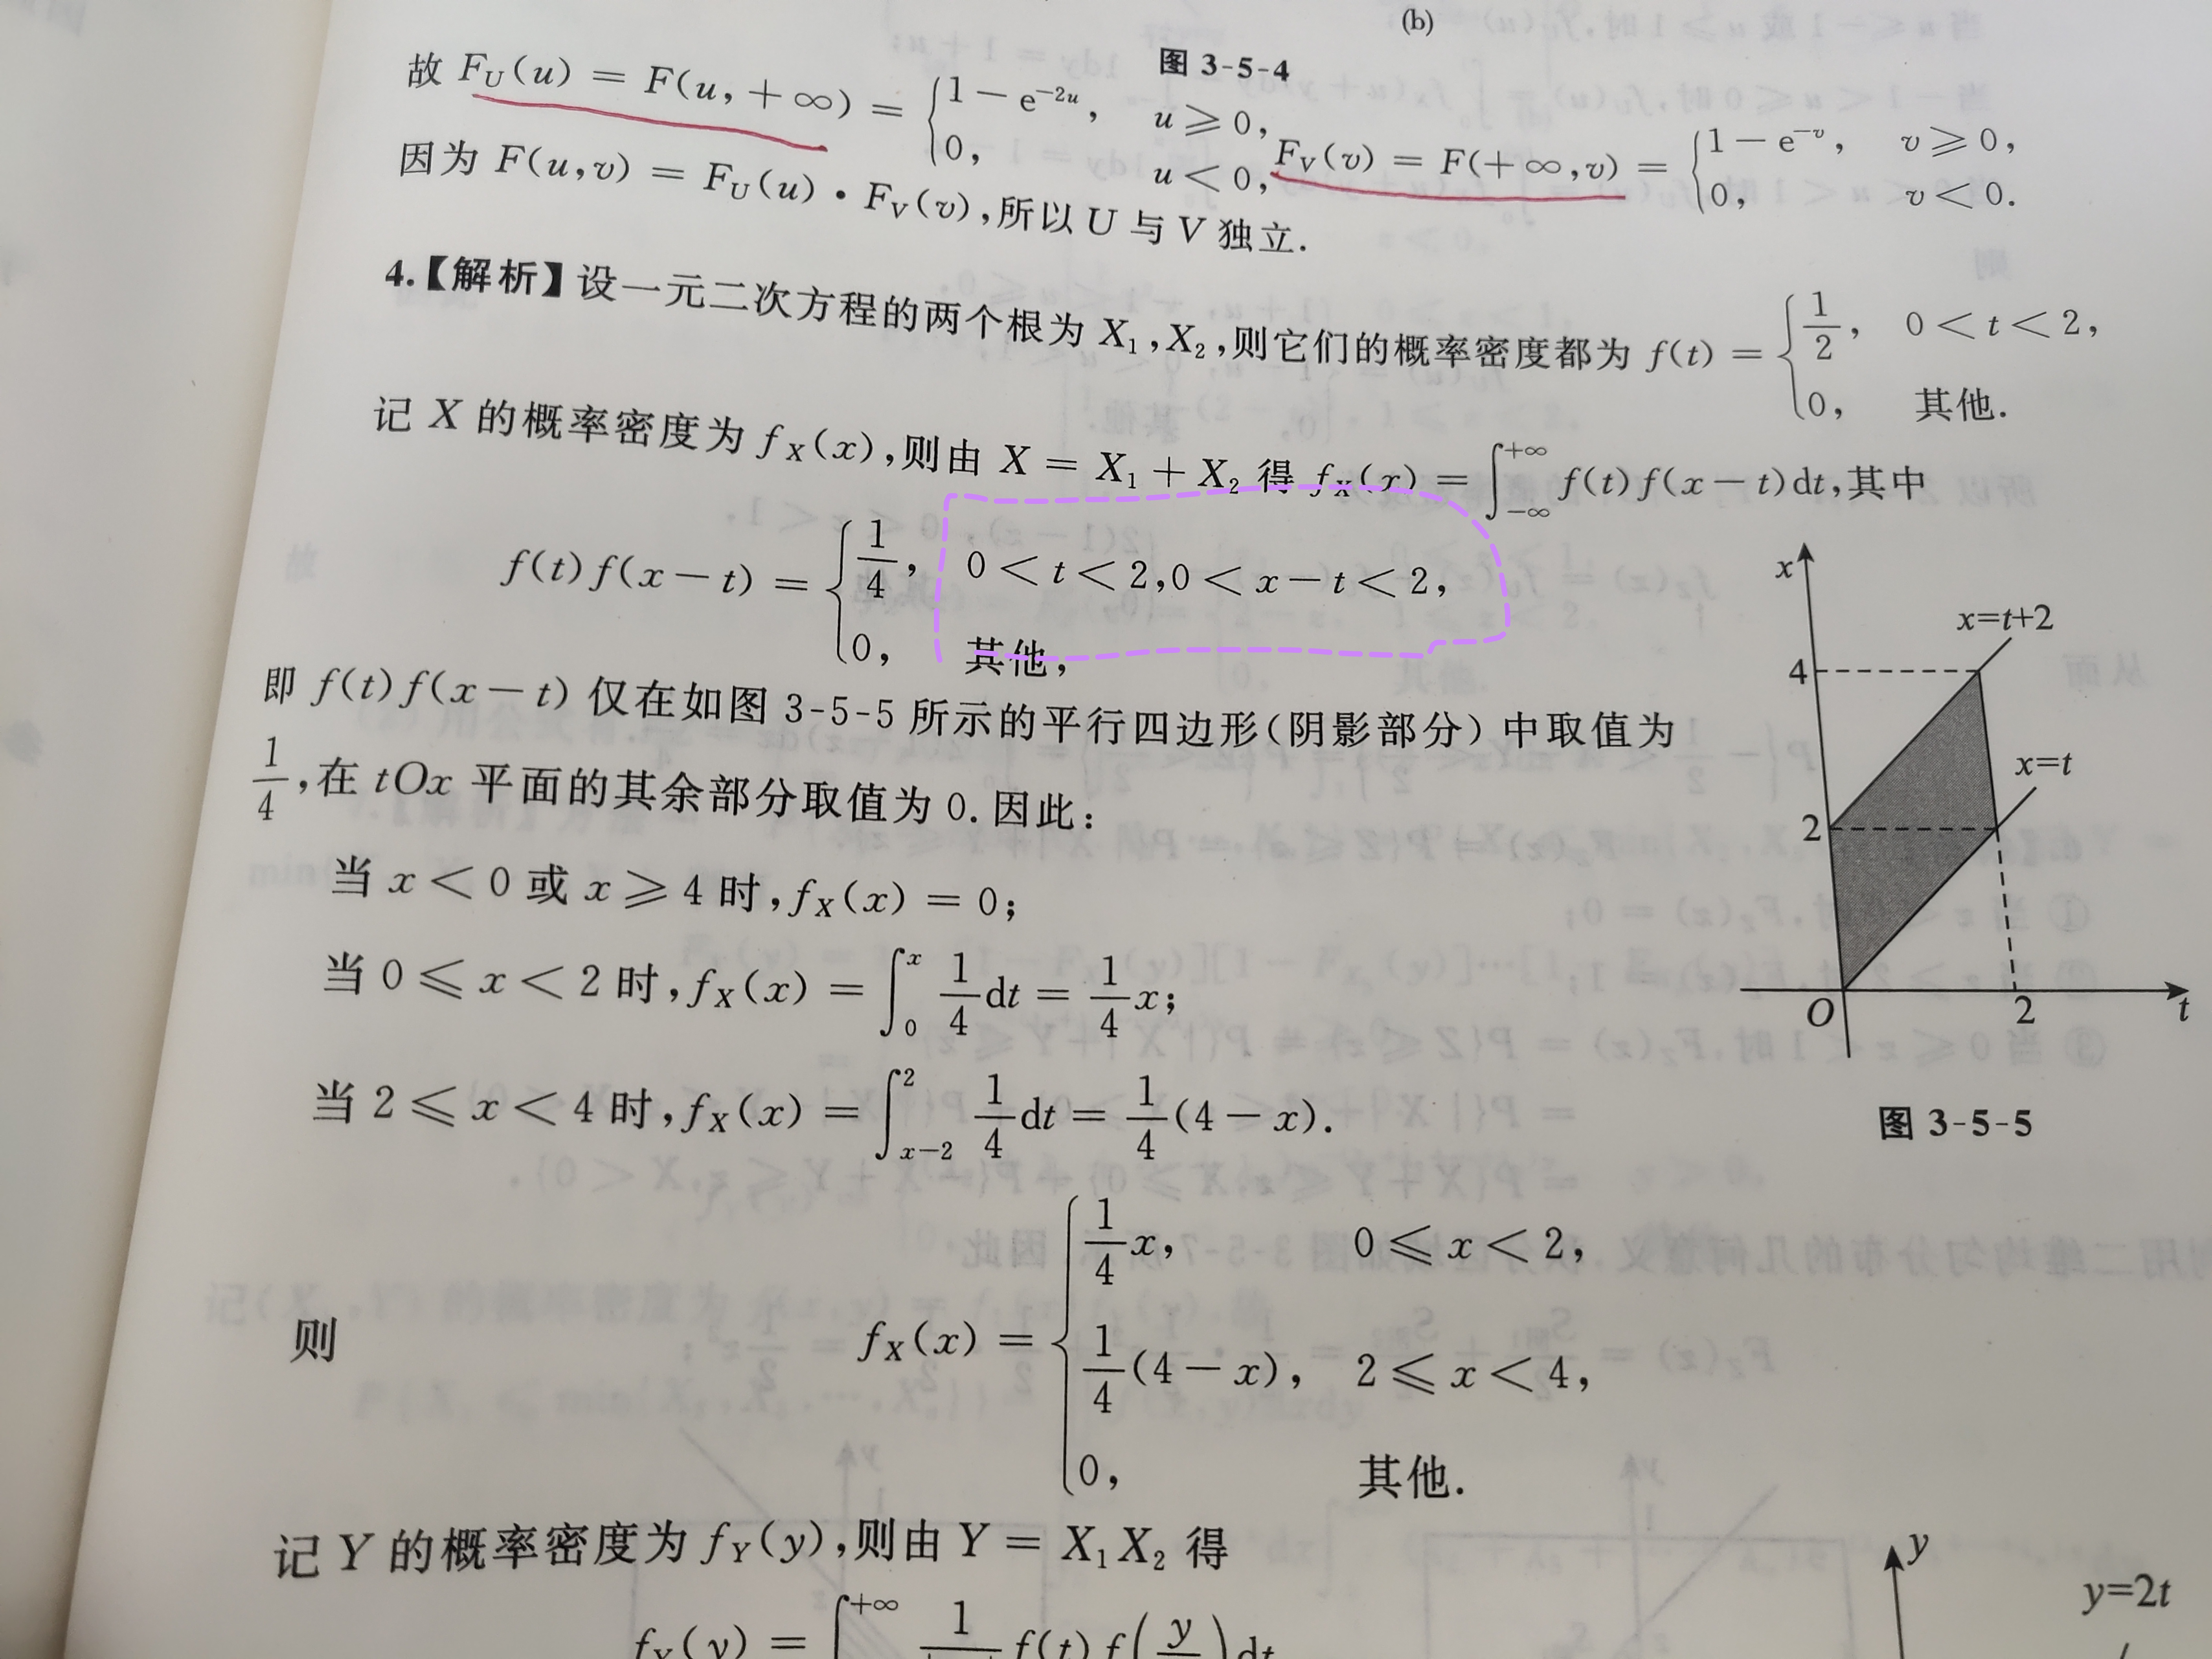 (b)
图 3-5-4
故 F_U(u) = F(u, +∞) = { 1 - e^{-2u}, u ≥ 0, 0, u < 0, F_V(v) = F(+∞, v) = { 1 - e^{-v}, v ≥ 0, 0, v < 0.
因为 F(u,v) = F_U(u) · F_V(v),所以 U 与 V 独立.
4.【解析】设一元二次方程的两个根为 X_1,X_2,则它们的概率密度都为 f(t) = { 1/2, 0 < t < 2, 0, 其他.
记 X 的概率密度为 f_X(x),则由 X = X_1 + X_2 得 f_X(x) = ∫_{-∞}^{+∞} f(t)f(x-t)dt,其中
f(t)f(x-t) = { 1/4, 0 < t < 2,0 < x-t < 2, 0, 其他,
即 f(t)f(x-t) 仅在如图 3-5-5 所示的平行四边形(阴影部分)中取值为
1/4,在 tOx 平面的其余部分取值为 0.因此:
当 x < 0 或 x ≥ 4 时,f_X(x) = 0;
当 0 ≤ x < 2 时,f_X(x) = ∫_0^x 1/4 dt = 1/4 x;
当 2 ≤ x < 4 时,f_X(x) = ∫_{x-2}^2 1/4 dt = 1/4 (4-x).
x
x=t+2
4
x=t
2
O
2
t
图 3-5-5
则 f_X(x) = { 1/4 x, 0 ≤ x < 2, 1/4 (4-x), 2 ≤ x < 4, 0, 其他.
记 Y 的概率密度为 f_Y(y),则由 Y = X_1X_2 得
y
y=2t